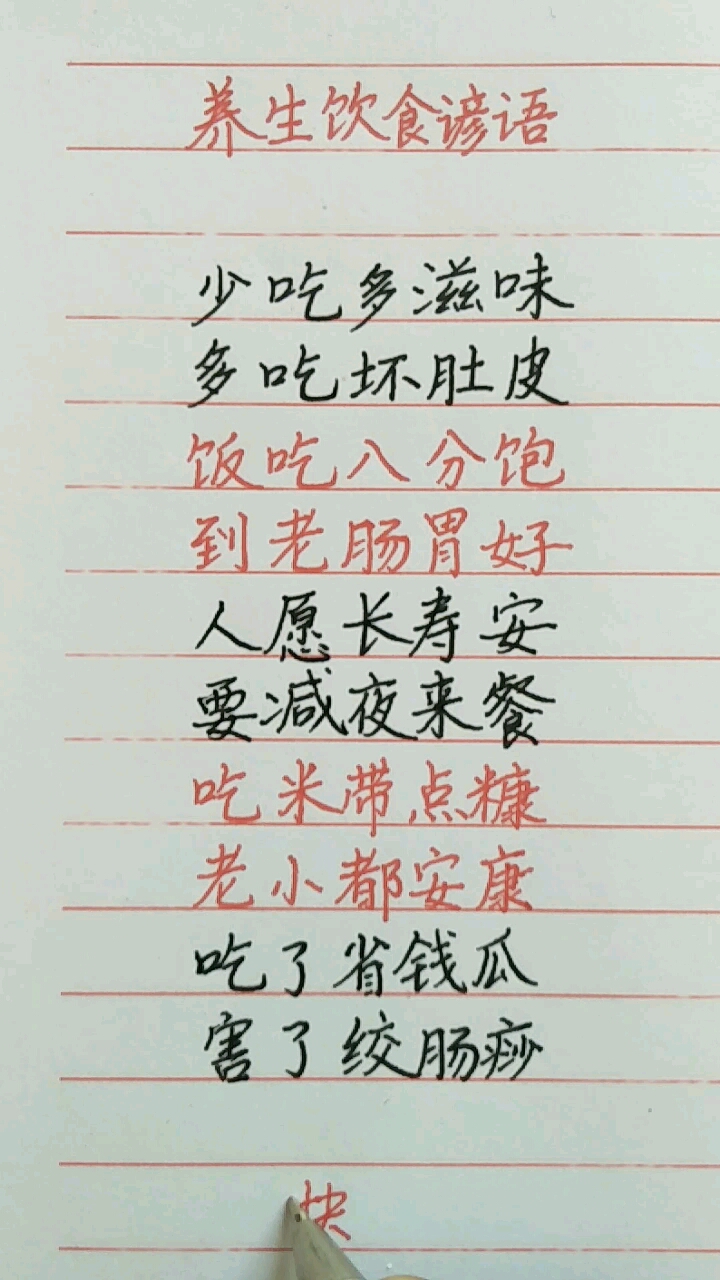 养生饮食谚语
少吃多滋味
多吃坏肚皮
饭吃八分饱
到老肠胃好
人愿长寿安
要减夜来餐
吃米带点糠
老小都安康
吃了省钱瓜
害了绞肠痧